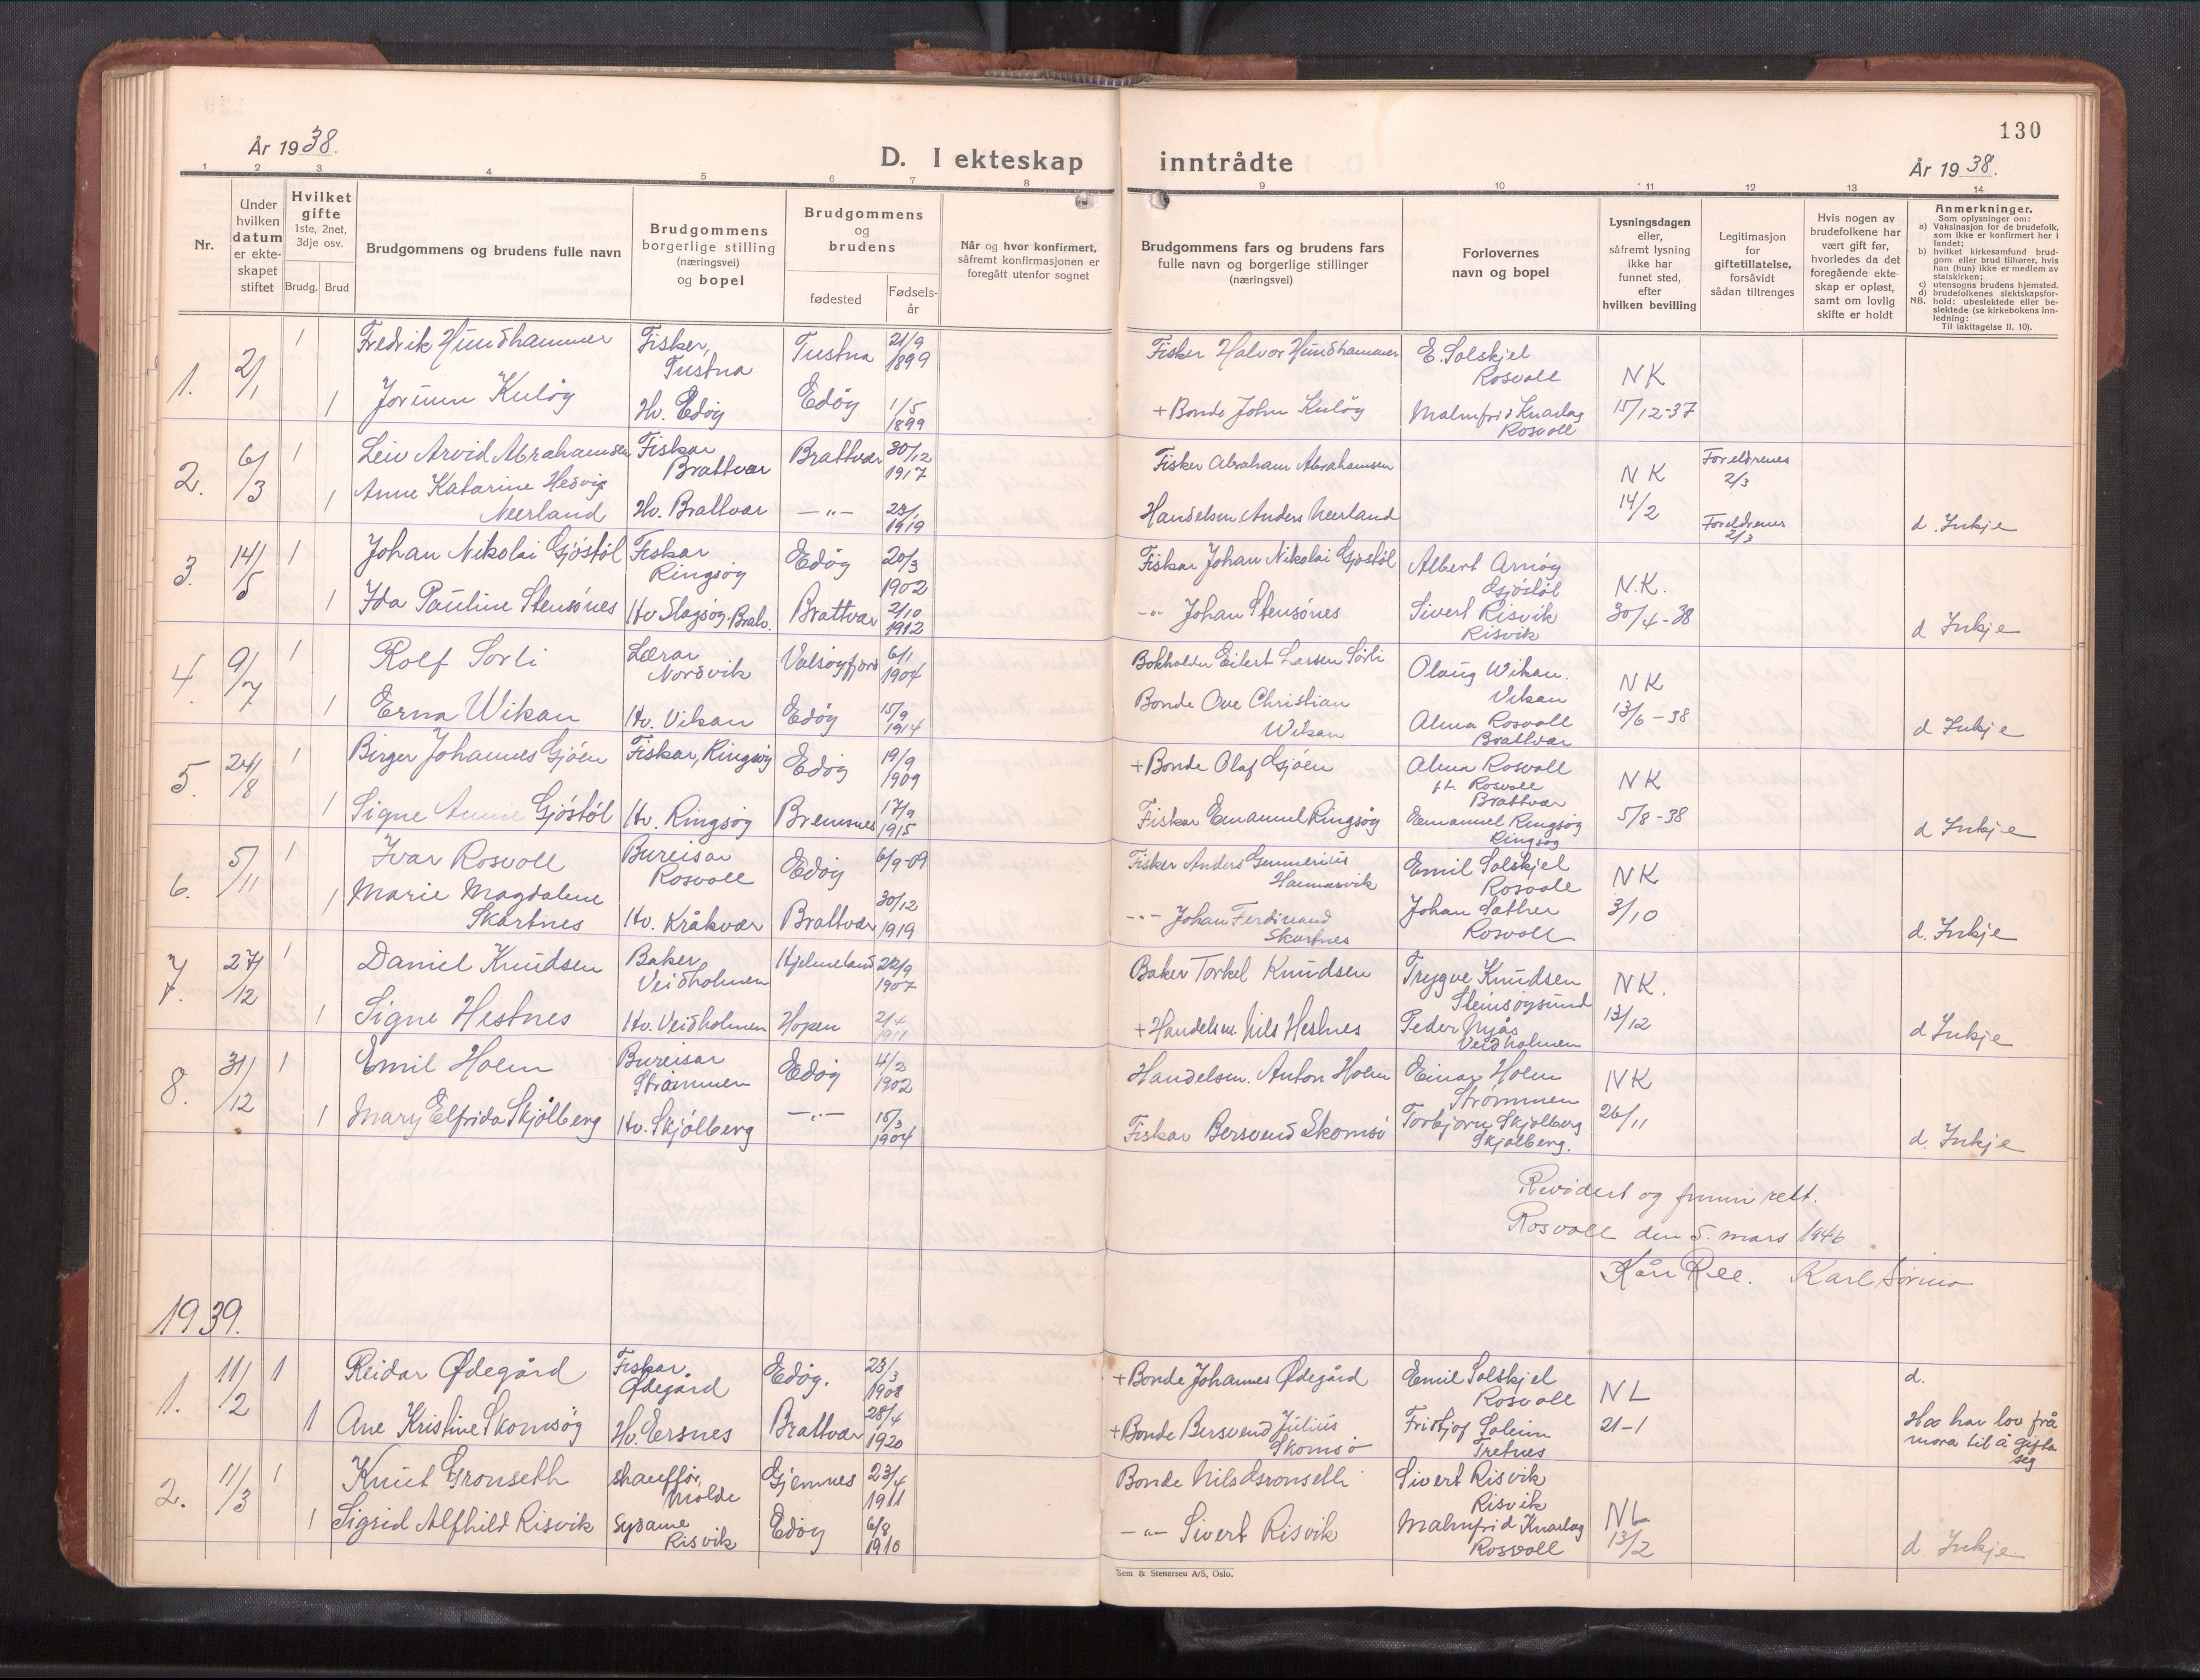 130
År 1938.
D. I ekteskap inntrådte
År 1938.
1 2 3 4 5 6 7 8 9 10 11 12 13 14
Nr.
Under hvilken datum er ekteskapet stiftet
Hvilket gifte 1ste, 2net, 3dje osv.
Brudg. Brud
Brudgommens og brudens fulle navn
Brudgommens borgerlige stilling (næringsvei) og bopel
Brudgommens og brudens
fødested
Fødselsår
Når og hvor konfirmert, såfremt konfirmasjonen er foregått utenfor sognet
Brudgommens fars og brudens fars fulle navn og borgerlige stillinger (næringsvei)
Forlovernes navn og bopel
Lysningsdagen eller, såfremt lysning ikke har funnet sted, efter hvilken bevilling
Legitimasjon for giftetillatelse, forsåvidt sådan tiltrenges
Hvis nogen av brudefolkene har vært gift før, hvorledes da det foregående ekteskap er opløst, samt om lovlig skifte er holdt
Anmerkninger.
Som oplysninger om:
a) Vaksinasjon for de brudefolk, som ikke er konfirmert her i landet;
b) hvilket kirkesamfund brudgom eller brud tilhører, hvis han (hun) ikke er medlem av statskirken;
c) utensogns brudens hjemsted.
d) brudefolkenes slektskapsforhold: ubeslektede eller beslektede (se kirkebokens innledning:
NB.
Til iakttagelse II. 10).
1. 2/1 1 Fredrik Hundhammer Fisker, Tustna Tustna 21/9 1899 Fisker Halvor Hundhammer E. Solskjel Rosvoll NK
1 Jorunn Kuløy Hv. Edøy Edøy 1/5 1899 + Bonde John Kuløy Malmfrid Knarlag Rosvoll 15/12-37
2. 6/3 1 Leiv Arvid Abrahamsen Fiskar Brattvær Brattvær 30/12 1917 Fisker Abraham Abrahamsen NK Foreldrenes 2/3
1 Anne Katarine Hedvig Neerland Hv. Brattvær —"— 23/1 1919 Handelsm. Anders Neerland 14/2 Foreldrenes 2/3 d. Inkje
3. 14/5 1 Johan Nikolai Gjøstøl Fiskar Ringsøy Edøy 20/3 1902 Fiskar Johan Nikolai Gjøstøl Albert Arnøy Gjøstøl N.K.
1 Ida Pauline Stensønes Hv Slagsøy. Bratv. Brattvær 2/10 1912 -"- Johan Stensønes Sivert Risvik Risvik 30/4-38 d Inkje
4. 9/7 1 Rolf Sørli Lærar Nordvik Valsøyfjord 6/1 1904 Bokholder Eilert Larsen Sørli Olaug Wikan. Vikan NK
1 Erna Wikan Hv. Vikan Edøy 15/9 1914 Bonde Ove Christian Wikan Alma Rosvoll Brattvær 13/6-38 d Inkje
5. 24/8 1 Birger Johannes Gjøen Fiskar, Ringsøy Edøy 19/9 1909 + Bonde Olaf Gjøen Alma Rosvoll Rosvoll Brattvær NK
1 Signe Annie Gjøstøl Hv. Ringsøy Bremsnes 17/9 1915 Fiskar Emanuel Ringsøy Emanuel Ringsøy Ringsøy 5/8-38 d Inkje
6. 5/11 1 Ivar Rosvoll Bureisar Rosvoll Edøy 6/9-09 Fisker Anders Gunnerius Hamnasvik Emil Solskjel Rosvoll NK
1 Marie Magdalene Skartnes Hv. Kråkvær Brattvær 30/12 1919 -"- Johan Ferdinand Skartnes Johan Sather Rosvoll 3/10 d. Inkje
7. 27/12 1 Daniel Knudsen Baker Veidholmen Hjelmeland 22/9 1907 Baker Torkel Knudsen Trygve Knudsen Steinsøysund NK.
1 Signe Hestnes Hv. Veidholmen Hopen 2/4 1911 + Handelsm. Nils Hestnes Peder Myås Veidholmen 13/12 d Inkje
8. 31/12 1 Emil Holm Bureisar Strømmen Edøy 4/2 1902 Handelsm. Anton Holm Einar Holm Strømmen NK
1 Mary Elfrida Skjølberg Hv. Skjølberg —"— 15/3 1904 Fiskar Bersvend Skomsø Torbjørn Skjølberg Skjølberg. 26/11 d. Inkje
Revidert og funni rett.
Rosvoll den 5. mars 1946
Karl Sørmo
1939.
1. 11/2 1 Reidar Ødegård Fiskar Ødegård Edøy. 23/3 1908 + Bonde Johannes Ødegård Emil Solskjel Rosvoll NL d.
1 Ane Kristine Skomsøy Hv. Ersnes Brattvær 28/4 1920 + Bonde Bersvend Julius Skomsø Fridtjof Soleim Tretnes 21-1 Ho har lov frå mora til å gifta seg
2. 11/3 1 Knut Grønseth shauffør, Molde Gjemnes 23/4 1911 Bonde Nils Grønseth Sivert Risvik Risvik NL
1 Sigrid Alfhild Risvik Sydame Risvik Edøy 6/8 1910 —"— Sivert Risvik Malmfrid Knarlag Rosvoll 13/2 d. Inkje
Sem & Stenersen A/S, Oslo.